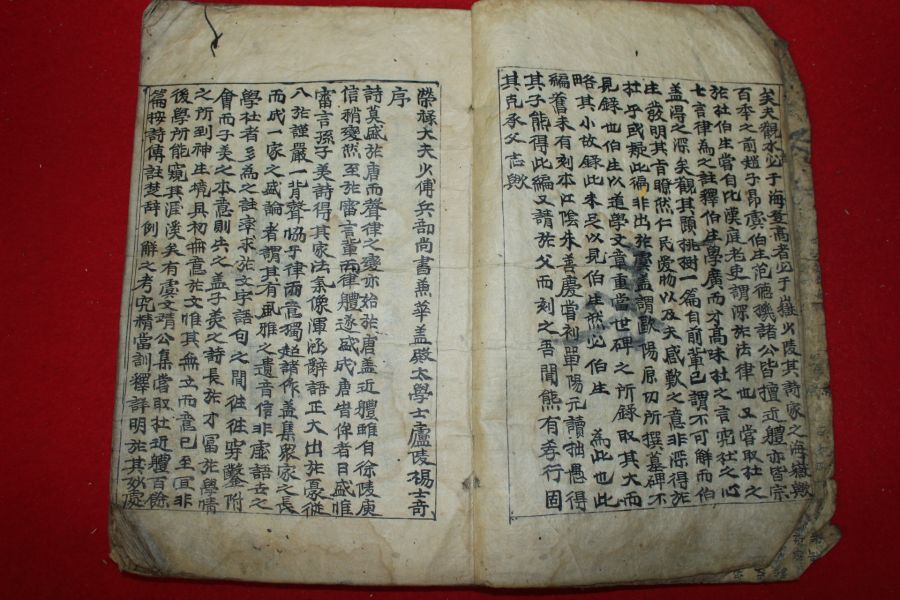 矣夫觀水必于海登高者必于嶽少陵其詩家之海嶽歟
百年之前趙子昂虞伯生范德機諸公皆擅近體亦皆宗
於杜伯生嘗自比漢庭老吏謂深於法律也又嘗取杜之
七言律為之註釋伯生學廣而才高味杜之言究杜之心
盖得之深矣觀其題桃樹一篇自前輩已謂不可解而伯
生發明其旨瞭然仁民愛物以及夫感歎之意非深得於
杜乎或疑此編非出於虞盖謂歐陽原功所撰墓碑不
見錄也伯生以道學文章重當世碑之所錄取其大而
略其小故錄此未足以見伯生然必伯生為此也此
編舊未有刻本江陰朱善慶嘗刻單陽元讀拙愚得
其子熊得此編又請於父而刻之吾聞熊有孝行固
其克承父志歟
榮祿大夫少傅兵部尚書兼華盖殿太學士廬陵楊士奇
序
詩莫盛於唐而聲律之變亦始於唐盖近體雖自徐陵庾
信稍變然至於審言輩而律體遂盛成唐峕俾者日盛惟
審言孫子美詩得其家法氣像渾涵辭語正大出於豪縱
八於謹嚴一背聲恊乎律而意獨超諸作盖集衆家之長
而成一家之盛論者謂其有風雅之遺音信非虛語世之
學杜者多為之註率求於文字語句之間往往穿鑿附
會而子美之本意則失之盖子美之詩長於才富於學情
之所到神生境具初無意於文惟其無立而意已至宜非
後學所能窺其涯涘矣有虞文靖公集嘗取杜近體百餘
篇按詩傳註楚辞例解之考究精當訓釋詳明於其妙處